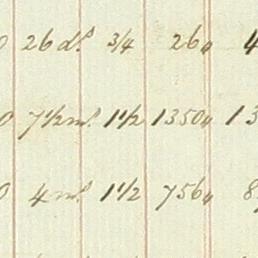 0 26 do. 3/4 26" 4
0 7 1/2 mo. 1 1/2 1350" 13
0 4 mo. 1 1/2 756" 8